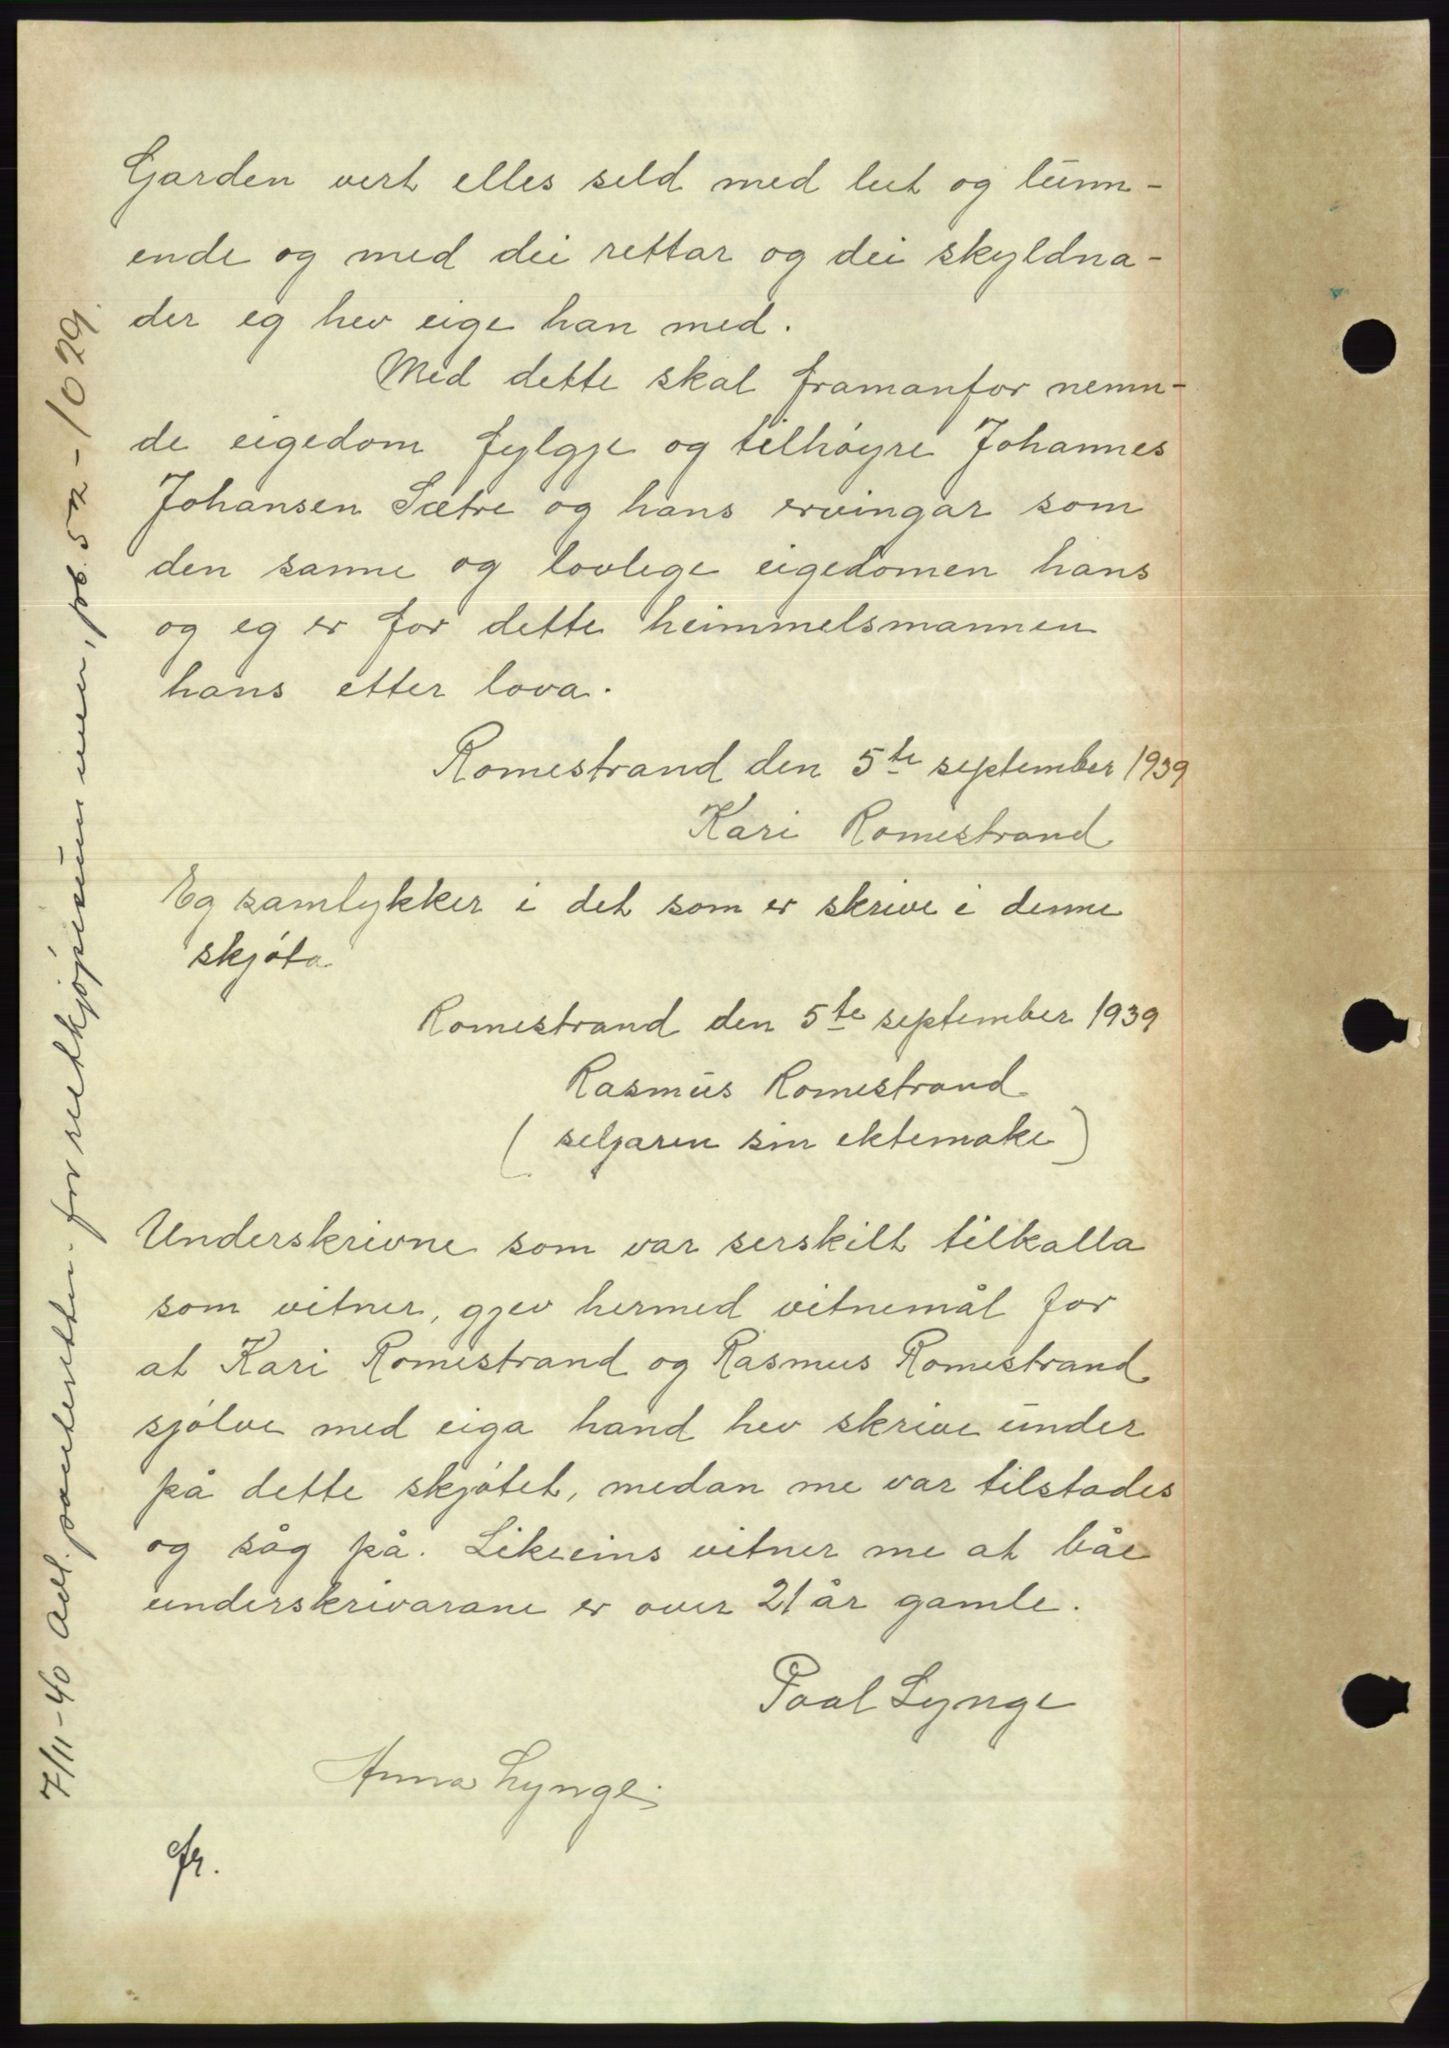 Garden vert elles seld med lut og lunn-
ende og med dei rettar og dei skyldna-
der eg hev eige han med.
Med dette skal framanfor nemn-
de eigedom fylgje og tilhøyre Johannes
Johansen Sætre og hans ervingar som
den sanne og lovlege eigedomen hans
og eg er for dette heimmelsmannen
hans etter lova.
Romestrand den 5te september 1939
Kari Romestrand
Eg samtykker i det som er skrive i denne
skjøta
Romestrand den 5te september 1939
Rasmus Romestrand
(seljaren sin ektemake)
Underskrivne som var serskilt tilkalla
som vitner, gjev hermed vitnemål for
at Kari Romestrand og Rasmus Romestrand
sjølve med eiga hand hev skrive under
på dette skjøtet, medan me var tilstades
og såg på. Likeeins vitner me at båe
underskrivarane er over 21 år gamle.
Paal Lynge
Anna Lynge
7/11-40 Avl. panteretten for restkjøpesummen, pb. 52-1029.